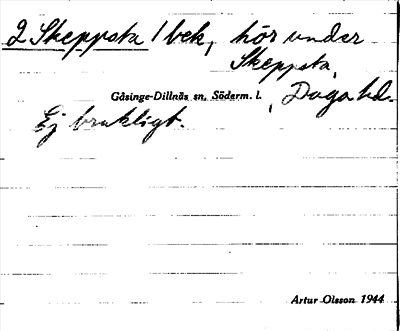 2 Skeppsta 1 bek, hör under
Skeppsta,
Gåsinge-Dillnäs sn, Söderm. l., Daga hd.
Ej brukligt.
Artur Olsson 1944